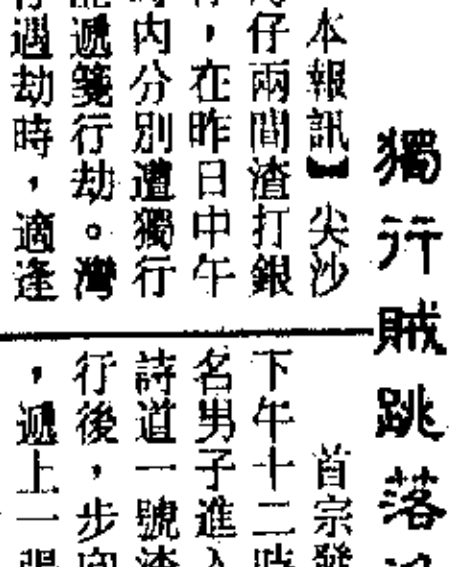 獨行賊跳落
本報訊】尖沙
仔兩間渣打銀
,在昨日中午
內分別遭獨行
遞箋行劫。灣
遇劫時,適逢
首宗發
下午十二時
名男子進入
詩道一號渣
行後,步向
,遞上一張